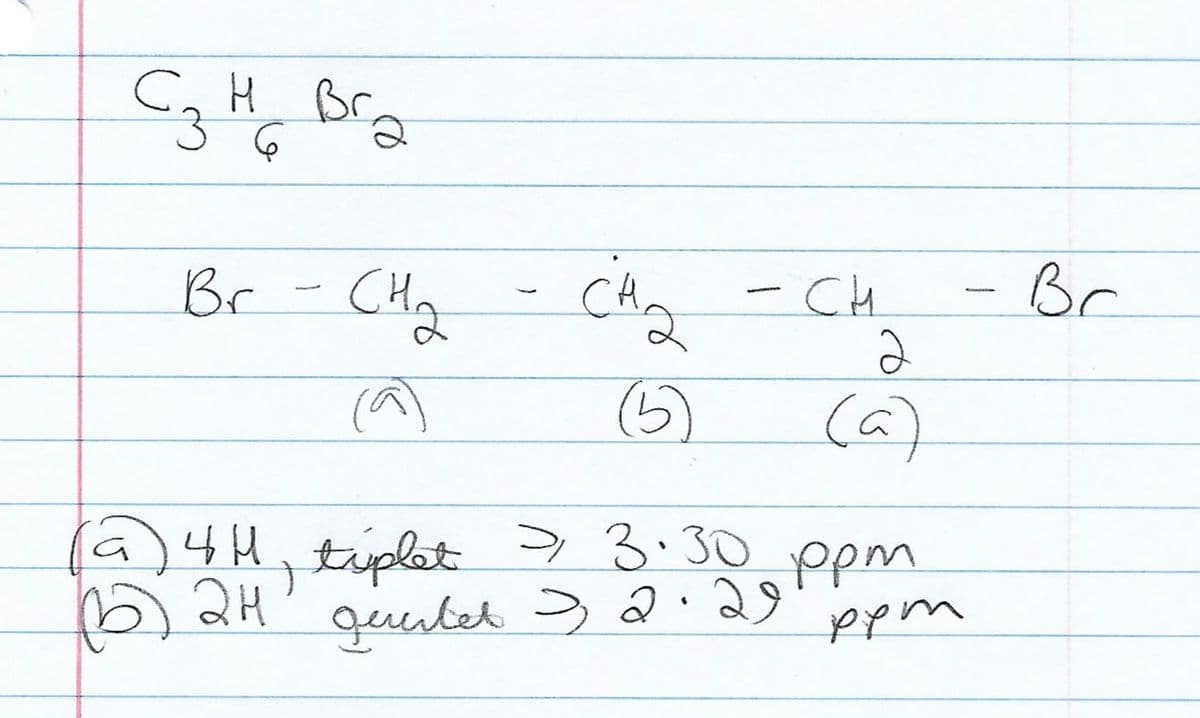 C₃H₆Br₂
Br - CH₂ - CH₂ - CH₂ - Br
(a) (b) (a)
(a) 4H, triplet => 3.30 ppm
(b) 2H => 2.29 ppm